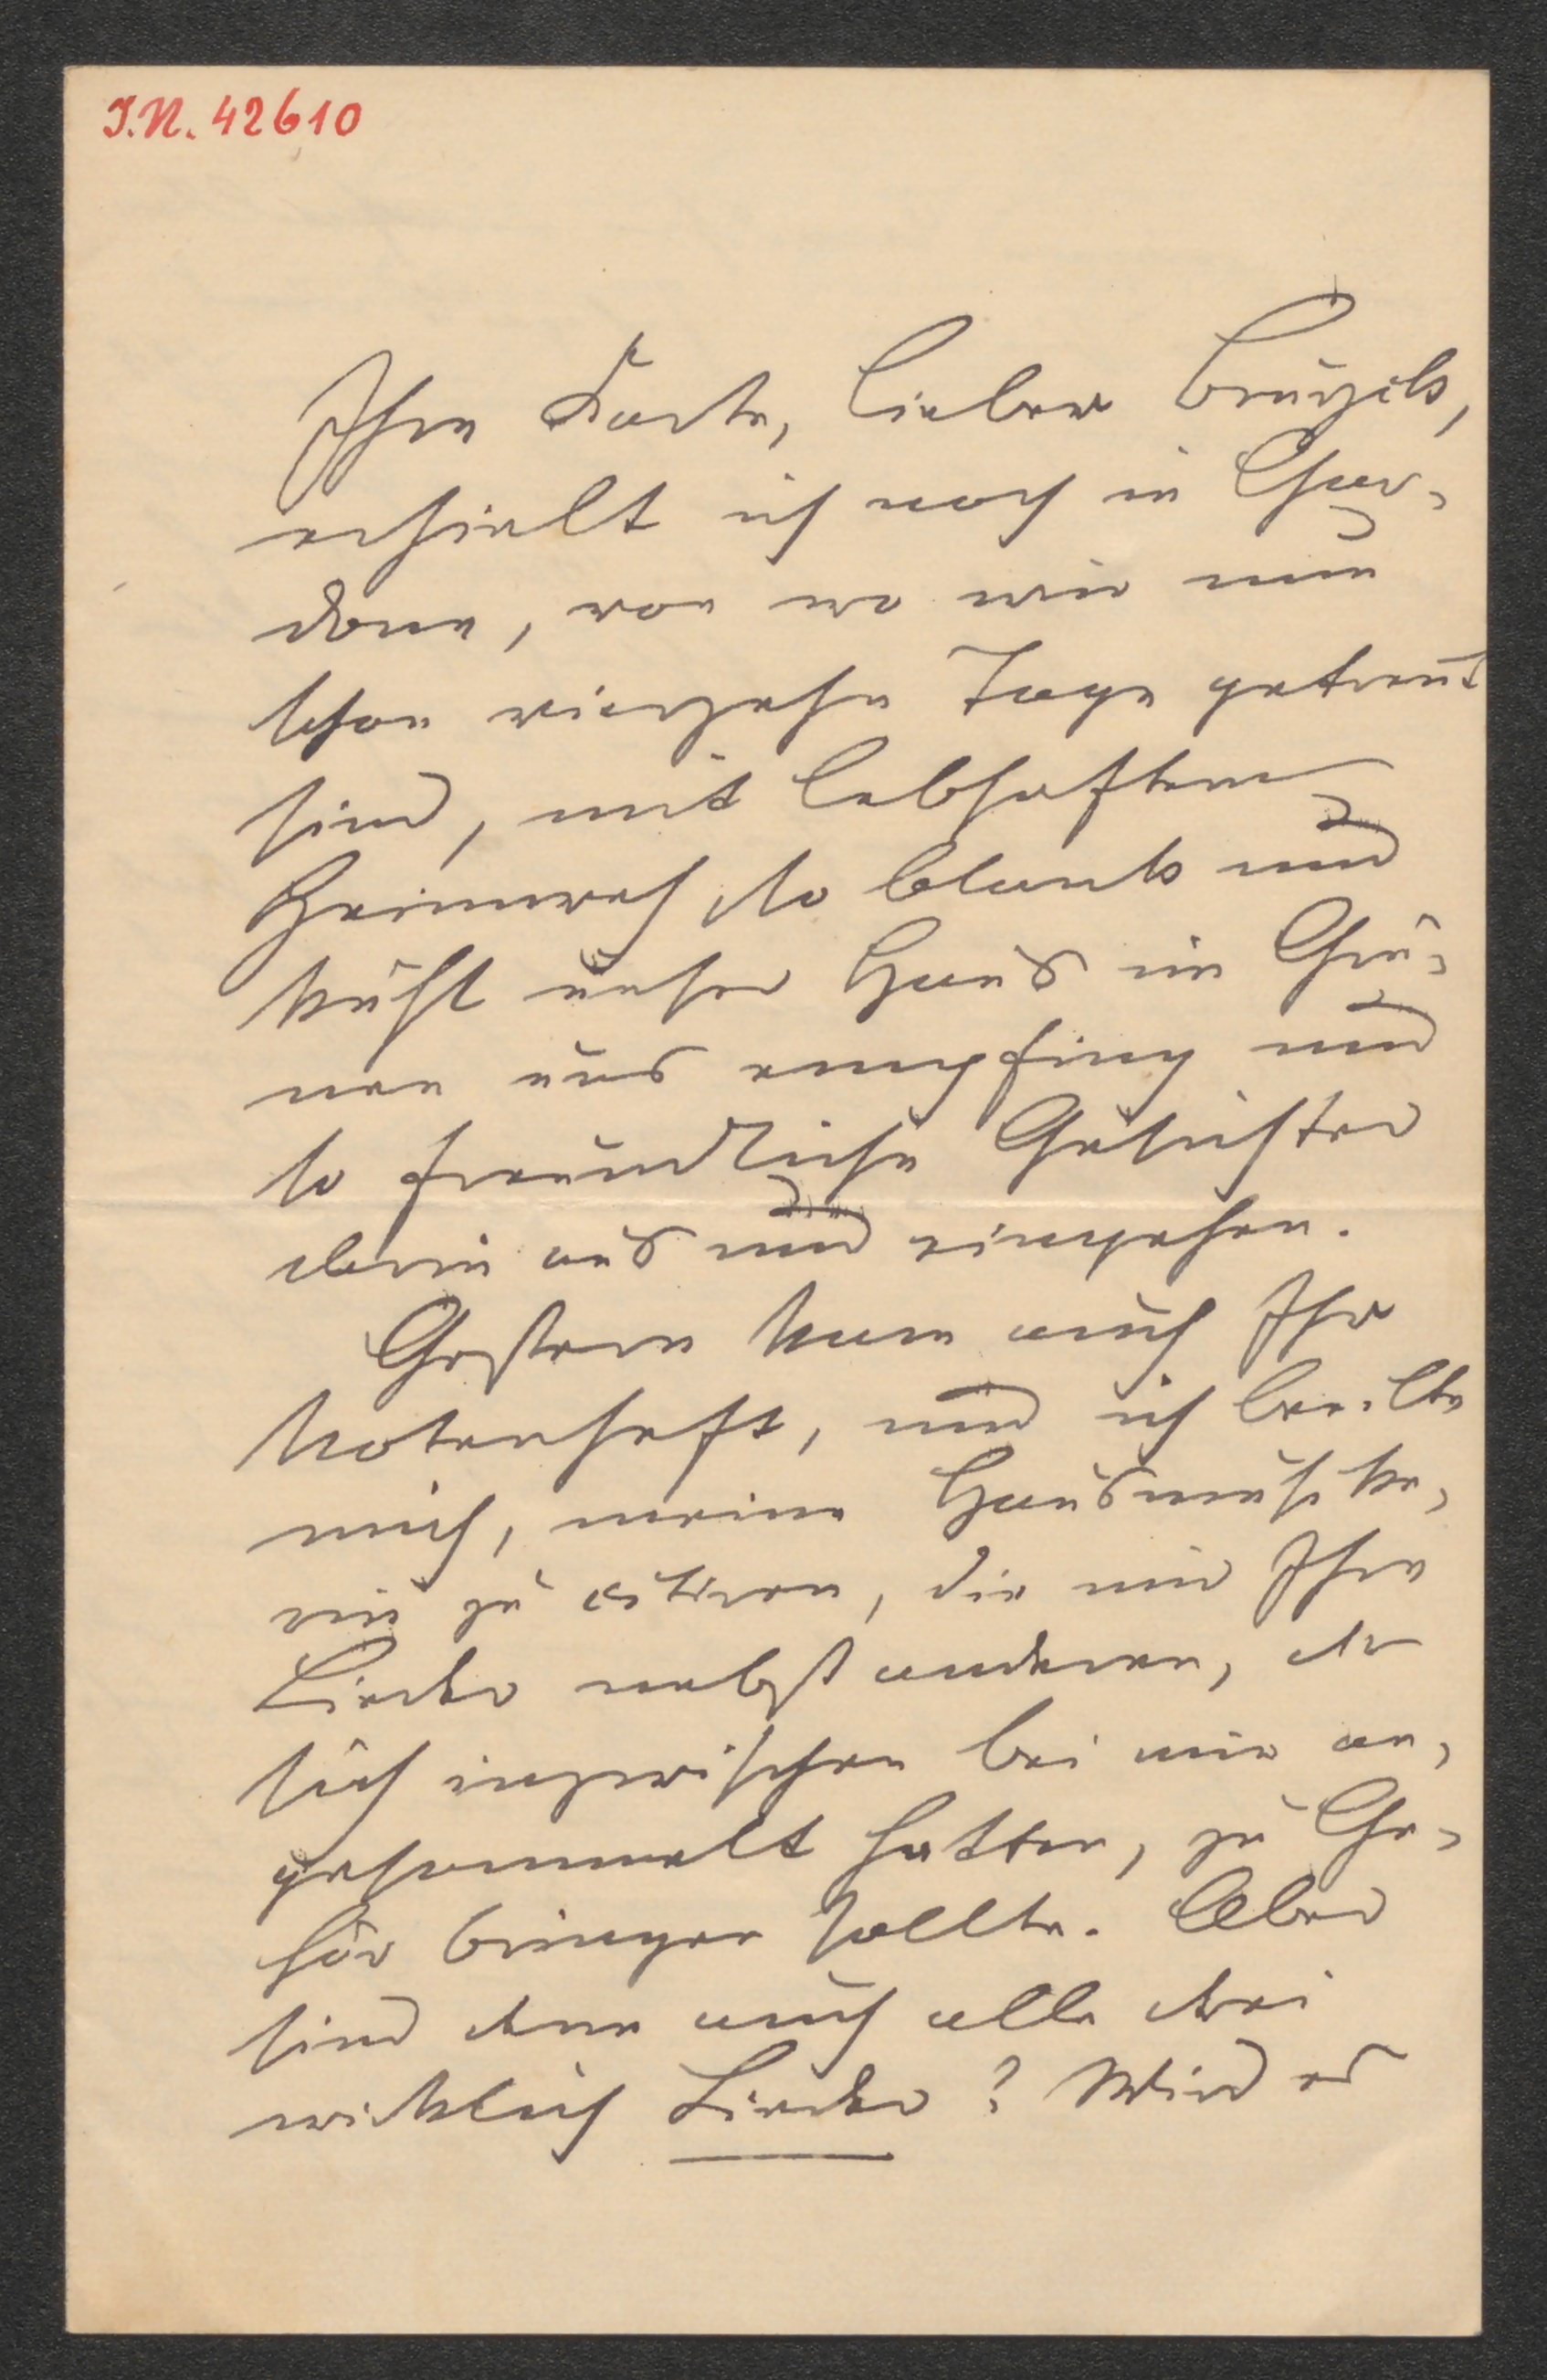 I.N. 42610
Ihre Karte, lieber Brüxels,
erhielt ich noch in Gar-
done, von wo wir nun
schon vierzehn Tage getrennt
sind, mit lebhaftem
Heimweh, so blank und
kühl unser Haus im Grü-
nen uns empfing und
so freundliche Gesichter
darin aus und eingehen.
Gestern kam auch Ihr
Notenheft, und ich beeilte
mich, meine Hausmusike-
rin zu citiren, die mir Ihre
Lieder nebst anderen, die
sich inzwischen bei mir an-
gesammelt hatten, zu Ge-
hör bringen sollte. Aber
sind denn auch alle drei
wirklich Lieder? Wird es